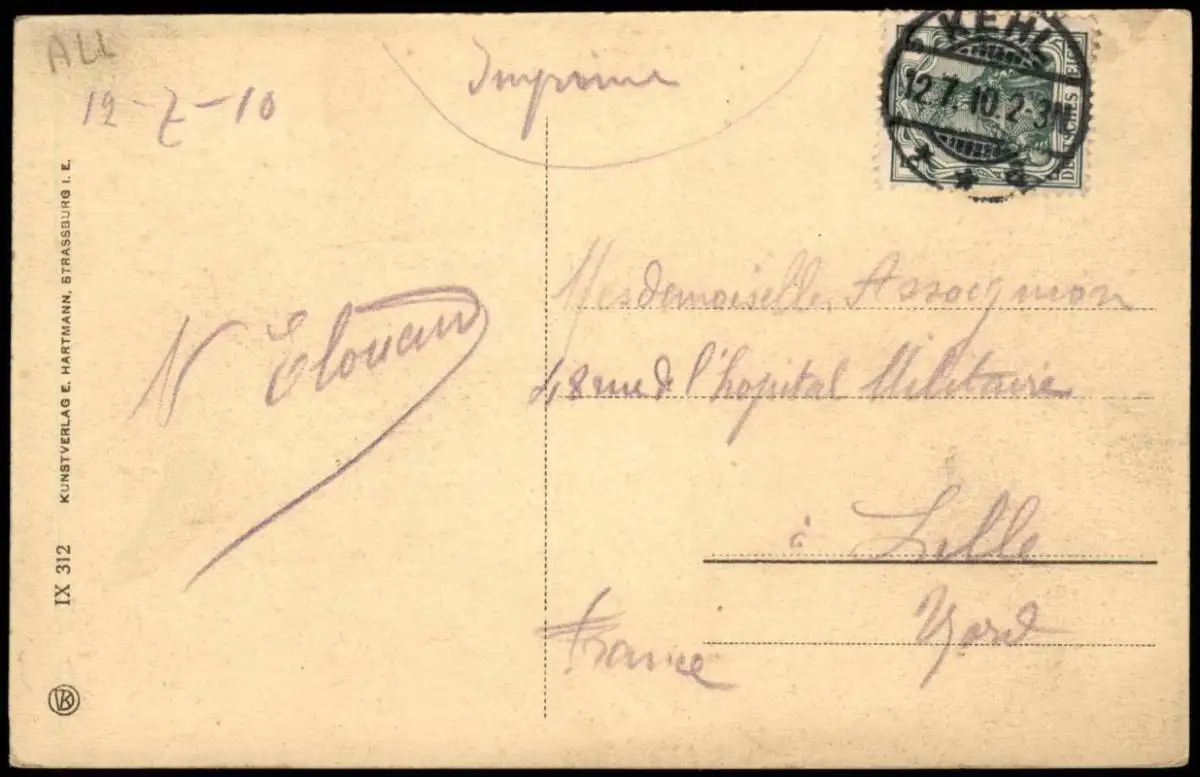 ALL
12-7-10
Imprimé
KEHL
12.7.10.2-3N
DEUTSCHES REICH
N Elouan
Mesdemoiselles Assoignion
48 rue de l'hopital Militaire
à Lille
Nord
France
IX 312 KUNSTVERLAG E. HARTMANN, STRASSBURG I. E.